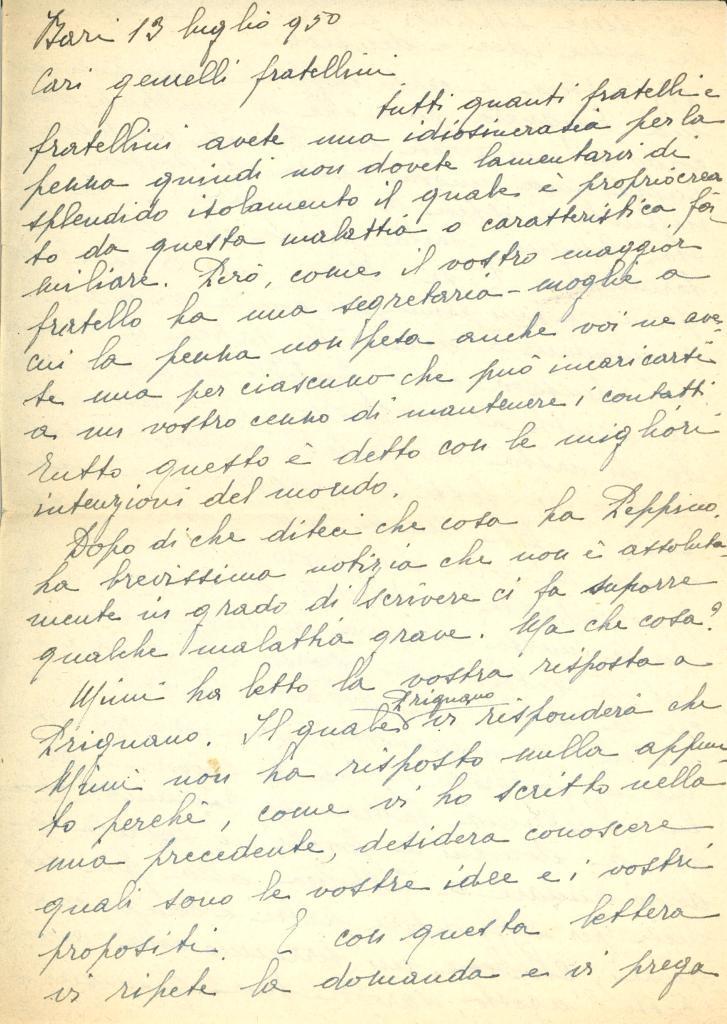 Bari 13 luglio 950
Cari gemelli fratellini
tutti quanti fratelli e
fratellini avete una idiosincrasia per la
penna quindi non dovete lamentarvi di
splendido isolamento il quale è proprio crea
to da questa malattia o caratteristica fa-
miliare. Però, come il vostro maggior
fratello ha una segretaria-moglie a
cui la penna non pesa anche voi ne ave-
te una per ciascuno che può incaricarsi
a un vostro cenno di mantenere i contatti.
Tutto questo è detto con le migliori
intenzioni del mondo.
Dopo di che diteci che cosa ha Peppino.
La brevissima notizia che non è assoluta-
mente in grado di scrivere ci fa suporre
qualche malattia grave. Ma che cosa?
Mimì ha letto la vostra risposta a
Prignano
Prignano. Il quale vi risponderà che
Mimì non ha risposto nulla appun-
to perchè, come vi ho scritto nella
mia precedente, desidera conoscere
quali sono le vostre idee e i vostri
propositi. E con questa lettera
vi ripete la domanda e vi prega